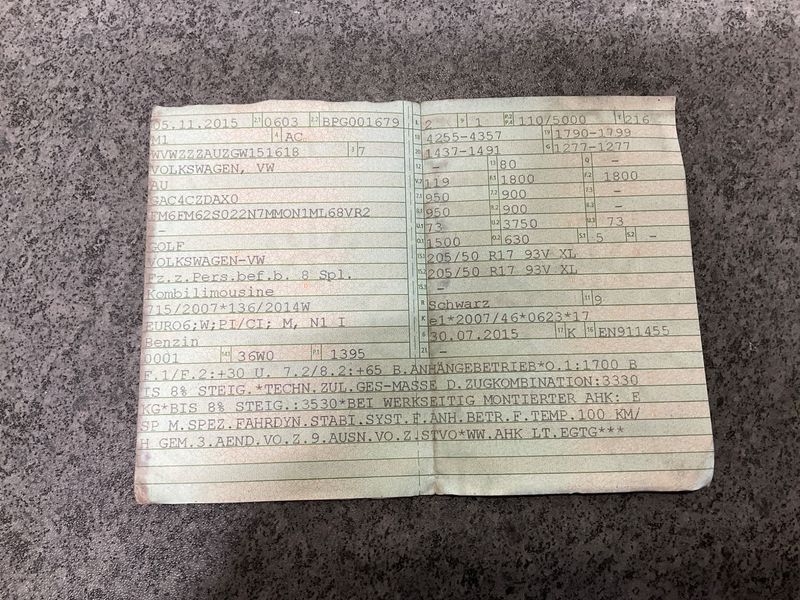 05.11.2015 2.1 0603 2.2 BPG001679
M1 4 AC
WVWZZZAUZGW151618 3 7
VOLKSWAGEN, VW
AU
GAC4CZDAX0
FM6FM62S022N7MMON1ML68VR2
-
GOLF
VOLKSWAGEN-VW
Fz.z.Pers.bef.b. 8 Spl.
Kombilimousine
715/2007*136/2014W
EURO6;W;PI/CI; M, N1 I
Benzin
0001 14.1 36W0 P.1 1395
L 2 9 1 P.2 P.4 110/5000 T 216
18 4255-4357 19 1790-1799
20 1437-1491 G 1277-1277
12 - 13 80 Q -
V.7 119 F.1 1800 F.2 1800
7.1 950 7.2 900 7.3 -
8.1 950 8.2 900 8.3 -
U.1 73 U.2 3750 U.3 73
O.1 1500 O.2 630 S.1 5 S.2 -
15.1 205/50 R17 93V XL
15.2 205/50 R17 93V XL
15.3 -
R Schwarz 11 9
K e1*2007/46*0623*17
6 30.07.2015 17 K 16 EN911455
21 -
F.1/F.2:+30 U. 7.2/8.2:+65 B.ANHÄNGEBETRIEB*O.1:1700 B
IS 8% STEIG.*TECHN.ZUL.GES-MASSE D.ZUGKOMBINATION:3330
KG*BIS 8% STEIG.:3530*BEI WERKSEITIG MONTIERTER AHK: E
SP M.SPEZ.FAHRDYN.STABI.SYST.F.ANH.BETR.F.TEMP.100 KM/
H GEM.3.AEND.VO.Z.9.AUSN.VO.Z.STVO*WW.AHK LT.EGTG***